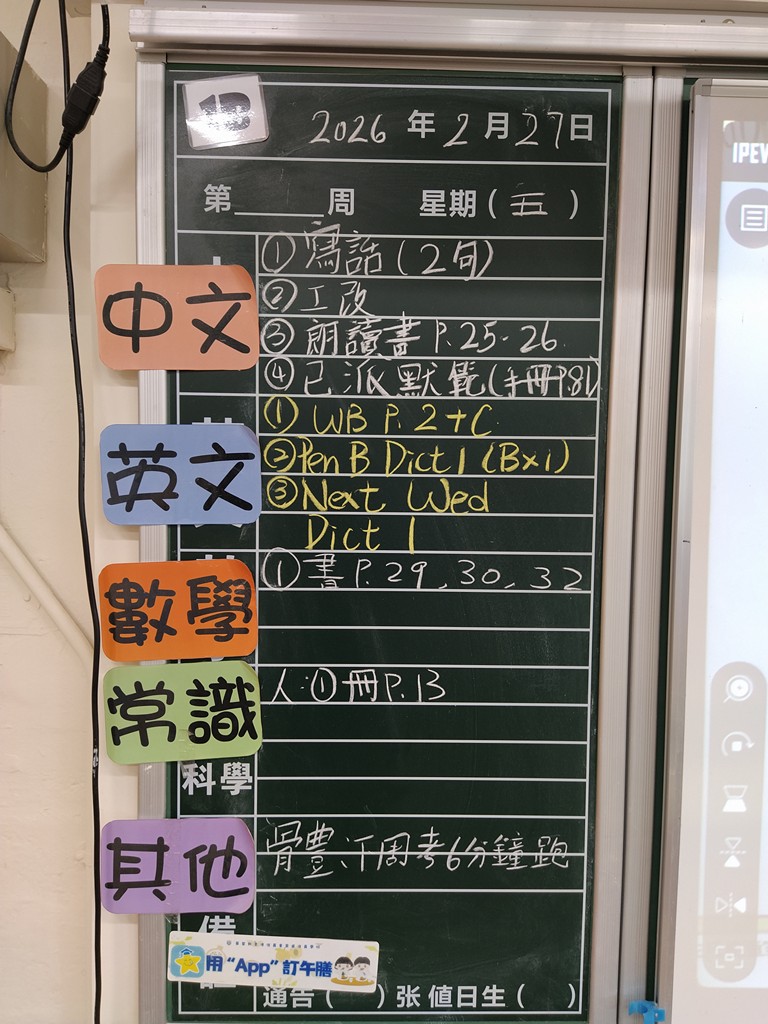 1B
2026 年 2 月 27 日
第____周 星期(五)
中文
①寫話(2句)
②工改
③朗讀書 P.25-26
④已派默範(手冊P.81)
英文
①WB P.2+C
②Pen B Dict 1 (B×1)
③Next Wed
Dict 1
數學
①書 P.29、30、32
常識
人:①冊P.13
科學
其他
體育:下周考6分鐘跑
備
用“App”訂午膳
通告( )张 值日生( )
IPEV